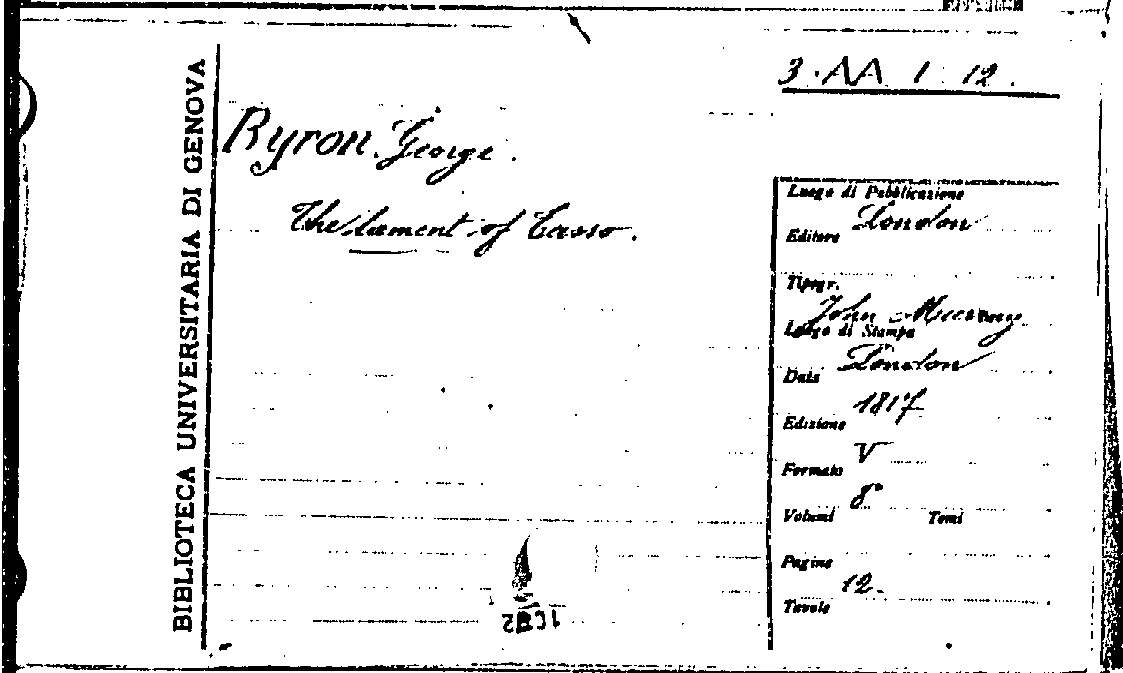 BIBLIOTECA UNIVERSITARIA DI GENOVA
3. AA 1 12.
Byron George.
The lament of Tasso.
Luogo di Pubblicazione
London
Editore
Tipogr.
John Murray
Luogo di Stampa
London
Data
1817
Edizione
V
Formato
8°
Volumi Tomi
Pagine
12.
Tavole